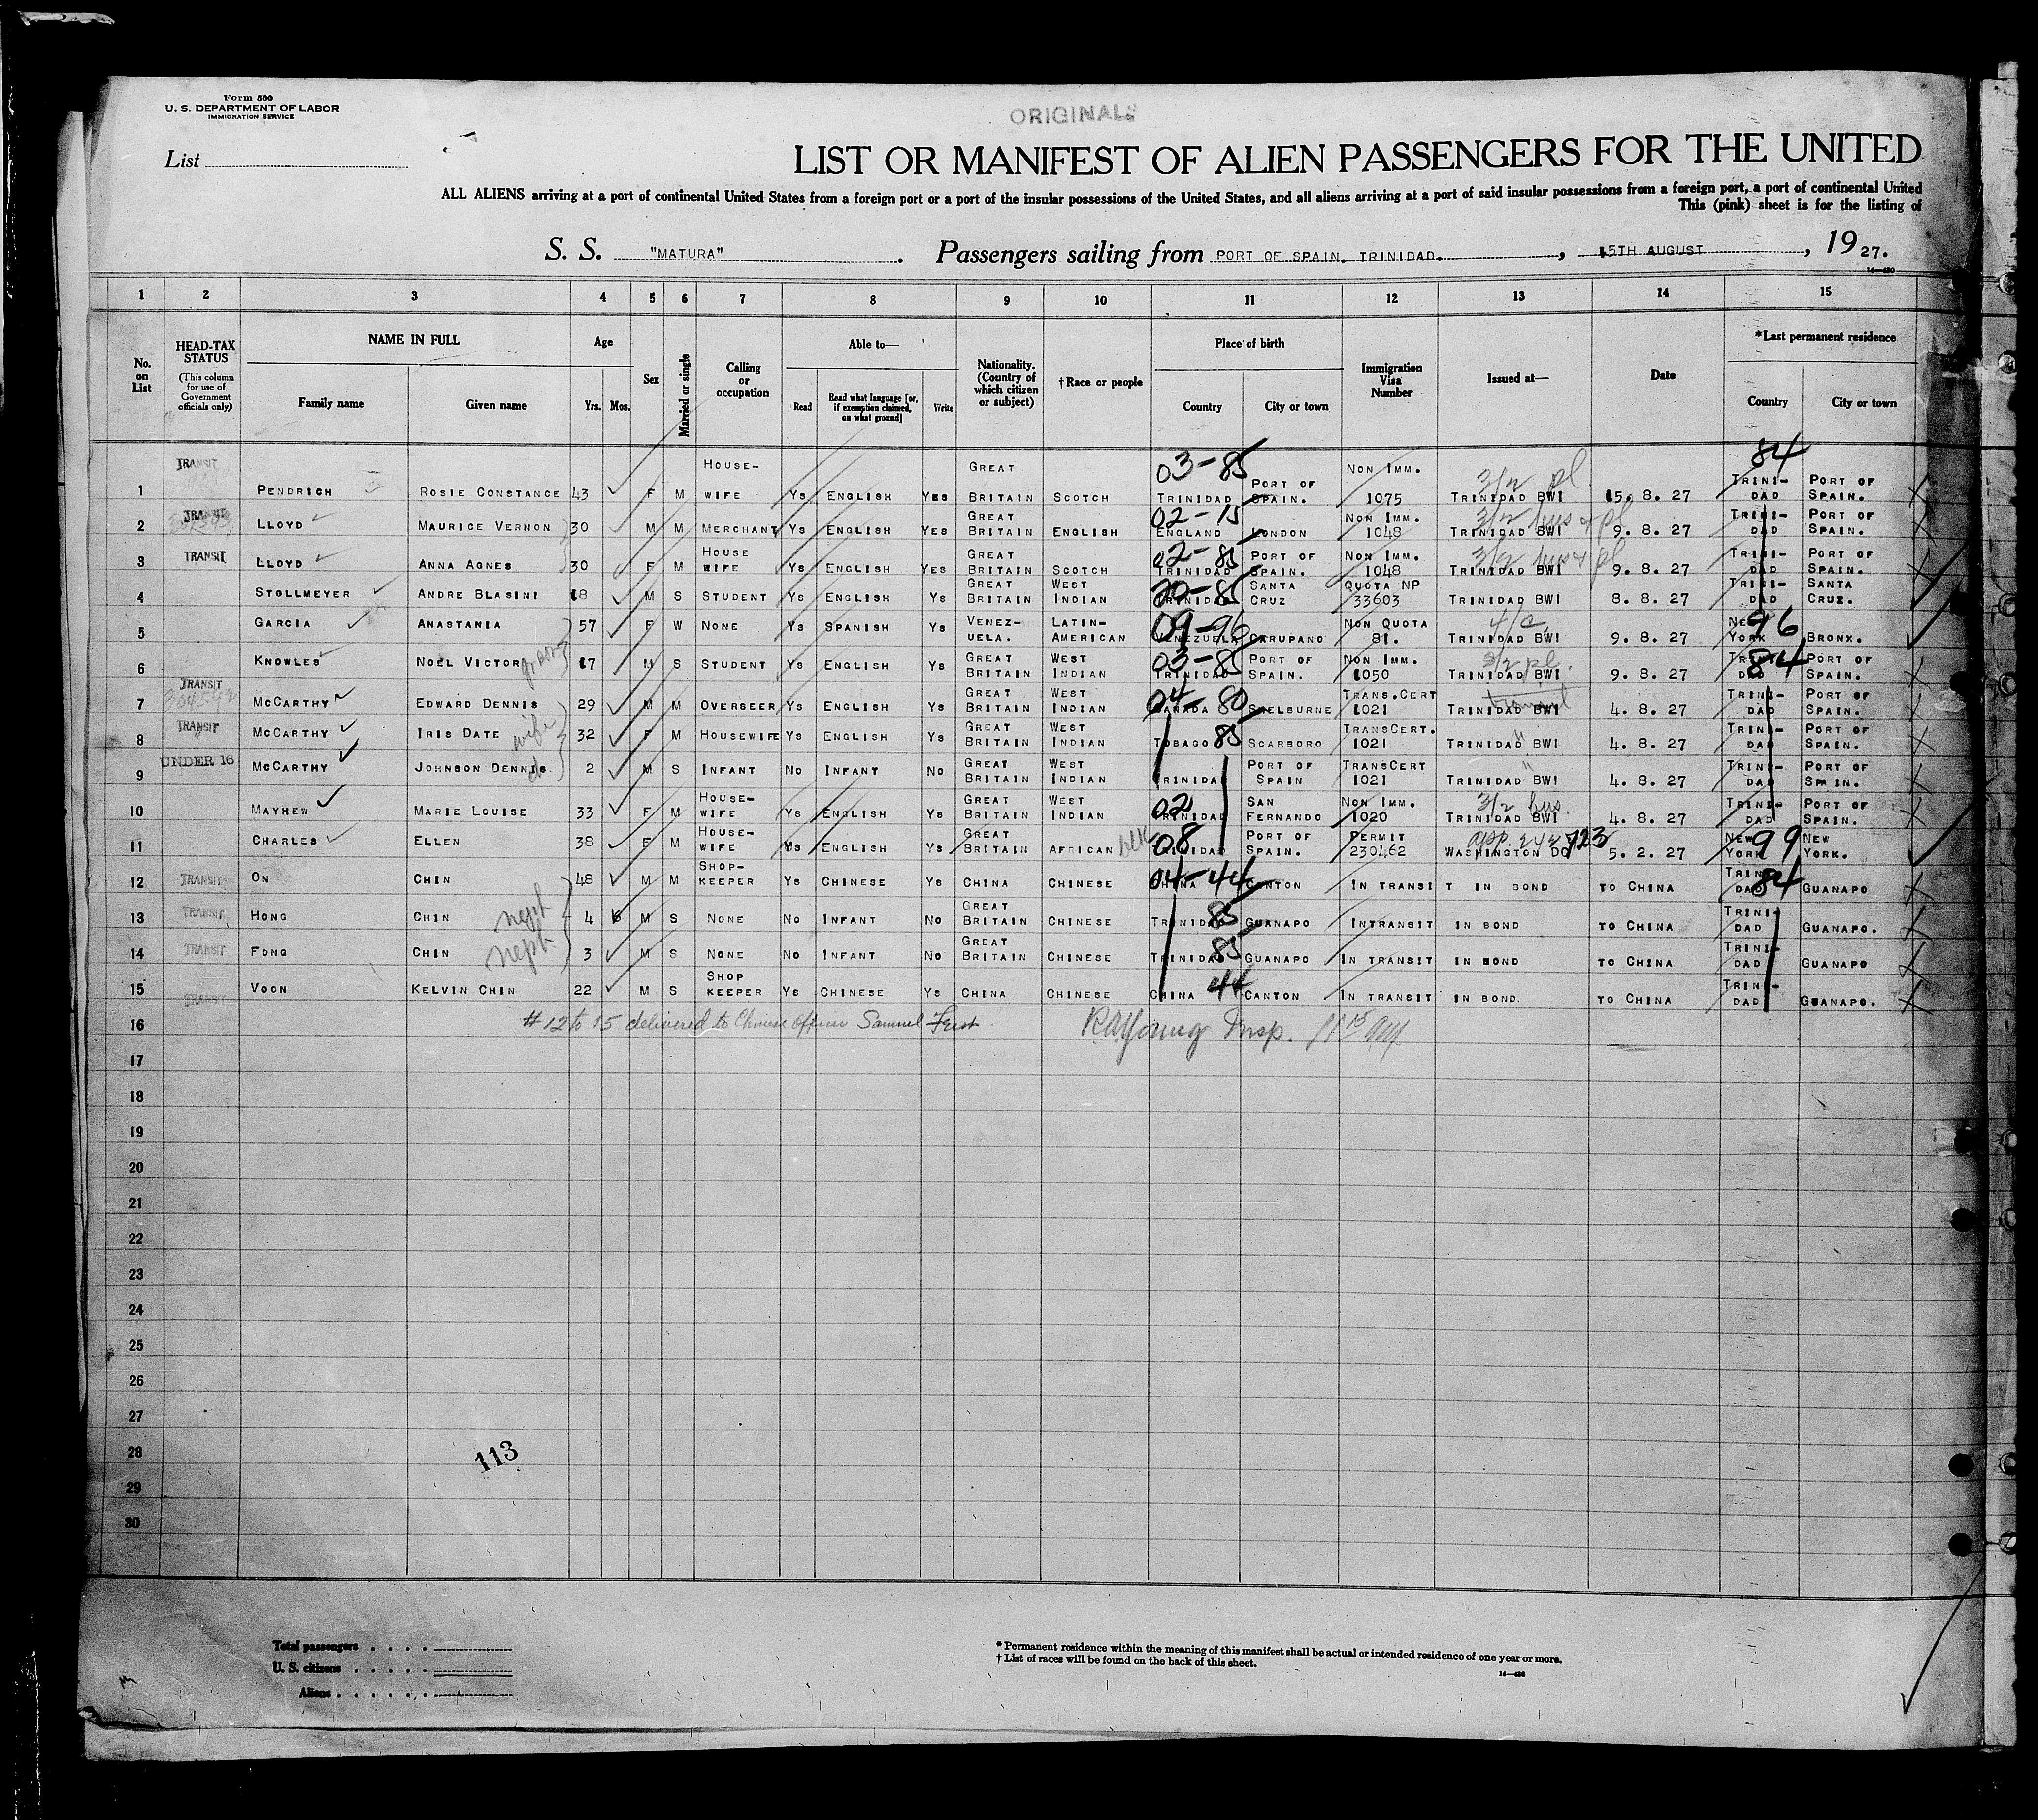 Form 500
U. S. DEPARTMENT OF LABOR
IMMIGRATION SERVICE
ORIGINAL
List
LIST OR MANIFEST OF ALIEN PASSENGERS FOR THE UNITED
ALL ALIENS arriving at a port of continental United States from a foreign port or a port of the insular possessions of the United States, and all aliens arriving at a port of said insular possessions from a foreign port, a port of continental United
This (pink) sheet is for the listing of
S. S. "MATURA". Passengers sailing from PORT OF SPAIN, TRINIDAD. , 15TH AUGUST , 1927.
14—430
1 2 3 4 5 6 7 8 9 10 11 12 13 14 15
No. on List HEAD-TAX STATUS (This column for use of Government officials only) NAME IN FULL Family name Given name Age Yrs. Mos. Sex Married or single Calling or occupation Able to— Read Read what language [or, if exemption claimed, on what ground] Write Nationality. (Country of which citizen or subject) †Race or people Place of birth Country City or town Immigration Visa Number Issued at— Date *Last permanent residence Country City or town
1 TRANSIT PENDRICH ROSIE CONSTANCE 43 F M HOUSE-WIFE YS ENGLISH YES GREAT BRITAIN SCOTCH 03-85 TRINIDAD PORT OF SPAIN. NON IMM. 1075 3/2 pl. TRINIDAD BWI 15. 8. 27 84 TRINI-DAD PORT OF SPAIN.
2 TRANSIT LLOYD MAURICE VERNON 30 M M MERCHANT YS ENGLISH YES GREAT BRITAIN ENGLISH 02-15 ENGLAND LONDON NON IMM. 1048 3/2 bus & pl TRINIDAD BWI 9. 8. 27 TRINI-DAD PORT OF SPAIN.
3 TRANSIT LLOYD ANNA AGNES 30 F M HOUSE WIFE YS ENGLISH YES GREAT BRITAIN SCOTCH 02-85 TRINIDAD PORT OF SPAIN. NON IMM. 1048 3/2 bus & pl TRINIDAD BWI 9. 8. 27 TRINI-DAD PORT OF SPAIN.
4 STOLLMEYER ANDRE BLASINI 18 M S STUDENT YS ENGLISH YS GREAT BRITAIN WEST INDIAN 20-85 TRINIDAD SANTA CRUZ QUOTA NP 33603 TRINIDAD BWI 8. 8. 27 TRINI-DAD SANTA CRUZ.
5 GARCIA ANASTANIA 57 F W NONE YS SPANISH YS VENEZ-UELA. LATIN-AMERICAN 09-96 VENEZUELA CARUPANO NON QUOTA 81. 4/c TRINIDAD BWI 9. 8. 27 96 NEW YORK BRONX.
6 KNOWLES NOEL VICTOR 17 M S STUDENT YS ENGLISH YS GREAT BRITAIN WEST INDIAN 03-85 TRINIDAD PORT OF SPAIN. NON IMM. 1050 3/2 pl. TRINIDAD BWI 9. 8. 27 84 TRINI-DAD PORT OF SPAIN.
7 TRANSIT MCCARTHY EDWARD DENNIS 29 M M OVERSEER YS ENGLISH YS GREAT BRITAIN WEST INDIAN 04-80 CANADA SHELBURNE TRANS.CERT 1021 TRINIDAD BWI 4. 8. 27 TRINI-DAD PORT OF SPAIN.
8 TRANSIT MCCARTHY IRIS DATE wife 32 F M HOUSEWIFE YS ENGLISH YS GREAT BRITAIN WEST INDIAN 85 TOBAGO SCARBORO TRANSCERT. 1021 " TRINIDAD BWI 4. 8. 27 TRINI-DAD PORT OF SPAIN.
9 UNDER 16 MCCARTHY JOHNSON DENNIS. 2 M S INFANT NO INFANT NO GREAT BRITAIN WEST INDIAN TRINIDAD PORT OF SPAIN TRANSCERT 1021 " TRINIDAD BWI 4. 8. 27 TRINI-DAD PORT OF SPAIN.
10 MAYHEW MARIE LOUISE 33 F M HOUSE-WIFE YS ENGLISH YS GREAT BRITAIN WEST INDIAN 02 TRINIDAD SAN FERNANDO NON IMM. 1020 3/2 bus. TRINIDAD BWI 4. 8. 27 TRINI-DAD PORT OF SPAIN.
11 CHARLES ELLEN 38 F M HOUSE-WIFE YS ENGLISH YS GREAT BRITAIN AFRICAN blk 08 TRINIDAD PORT OF SPAIN. PERMIT 230462 WASHINGTON DC 5. 2. 27 99 NEW YORK NEW YORK.
12 TRANSIT ON CHIN 48 M M SHOP-KEEPER YS CHINESE YS CHINA CHINESE 04-44 CHINA CANTON IN TRANSIT IN BOND TO CHINA 84 TRINI-DAD GUANAPO
13 TRANSIT HONG CHIN neph 4 6 M S NONE NO INFANT NO GREAT BRITAIN CHINESE 85 TRINIDAD GUANAPO INTRANSIT IN BOND TO CHINA TRINI-DAD GUANAPO.
14 TRANSIT FONG CHIN neph 3 M S NONE NO INFANT NO GREAT BRITAIN CHINESE 85 TRINIDAD GUANAPO IN TRANSIT IN BOND TO CHINA TRINI-DAD GUANAPO
15 TRANSIT VOON KELVIN CHIN 22 M S SHOP KEEPER YS CHINESE YS CHINA CHINESE 44 CHINA CANTON IN TRANSIT IN BOND. TO CHINA TRINI-DAD GUANAPO.
16 # 12 to 15 delivered to Chinese officer Samuel RAYoung Insp.
17
18
19
20
21
22
23
24
25
26
27
28
29
30
113
Total passengers
U. S. citizens
Aliens
* Permanent residence within the meaning of this manifest shall be actual or intended residence of one year or more.
† List of races will be found on the back of this sheet.
14—430